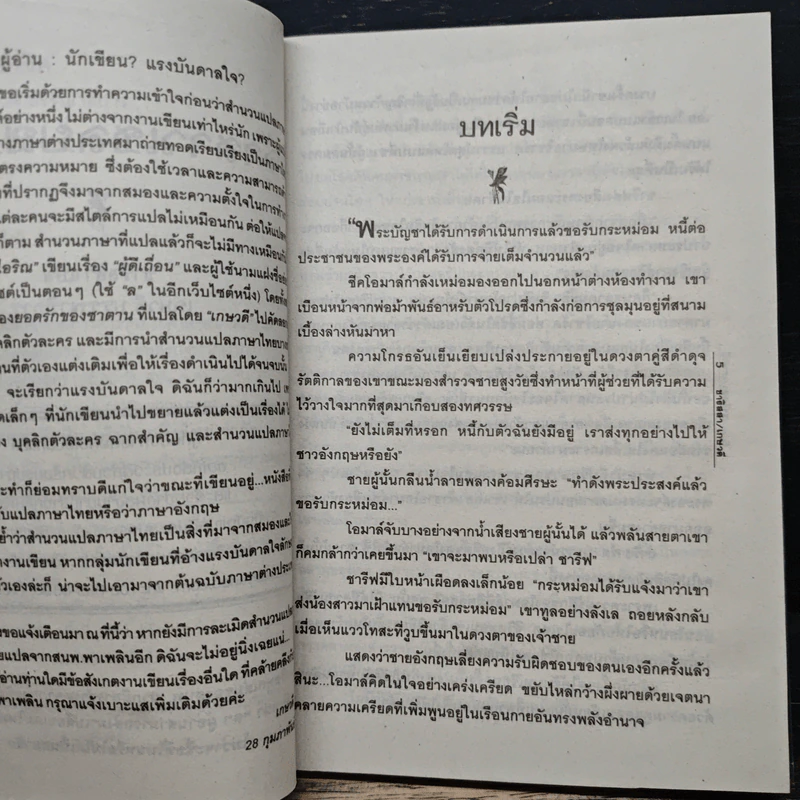 ผู้อ่าน : นักเขียน? แรงบันดาลใจ?
ขอเริ่มด้วยการทำความเข้าใจก่อนว่าสำนวนแปล
อย่างหนึ่ง ไม่ต่างจากงานเขียนเท่าไหร่นัก
ภาษาต่างประเทศมาถ่ายทอดเรียบเรียงเป็นภาษา
ตรงความหมาย ซึ่งต้องใช้เวลาและความสามารถ
ที่ปรากฏจึงมาจากสมองและความตั้งใจในการทำ
แต่ละคนจะมีสไตล์การแปลไม่เหมือนกัน ต่อให้แปล
ก็ตาม สำนวนภาษาที่แปลแล้วก็จะไม่มีทางเหมือนกัน
เขียนเรื่อง "ผู้ดีเถื่อน" และผู้ใช้นามแฝงชื่อ
เป็นตอนๆ (ใช้ "ล" ในอีกเว็บไซต์หนึ่ง)
ยอดรักของซาตาน ที่แปลโดย "เกษวดี" ไปคัดลอก
บุคลิกตัวละคร และมีการนำสำนวนภาษาไทยบาง
ที่ตัวเองแต่งเติมเพื่อให้เรื่องดำเนินไปได้จนจบ
จะเรียกว่าแรงบันดาลใจ ดิฉันก็ว่ามากเกินไป
เล็กๆ ที่นักเขียนนำไปขยายแล้วแต่งเป็นเรื่องได้
บุคลิกตัวละคร ฉากสำคัญ และสำนวนแปลภาษา
ทำก็ย่อมทราบดีแก่ใจว่าขณะที่เขียนอยู่...หนังสือ
แปลภาษาไทยหรือว่าภาษาอังกฤษ
ย้ำว่าสำนวนแปลภาษาไทยเป็นสิ่งที่มาจากสมองและ
งานเขียน หากกลุ่มนักเขียนที่อ้างแรงบันดาลใจ
ตัวเองล่ะก็ น่าจะไปเอามาจากต้นฉบับภาษาต่างประเทศ
ขอแจ้งเตือนมา ณ ที่นี้ว่า หากยังมีการละเมิดสำนวนแปล
แปลจากสนพ.พาเพลินอีก ดิฉันจะไม่อยู่นิ่งเฉยแน่...
อ่านท่านใดมีข้อสังเกตงานเขียนเรื่องอื่นใด ที่คล้ายคลึง
พาเพลิน กรุณาแจ้งเบาะแสเพิ่มเติมด้วยค่ะ
เกษวดี
28 กุมภาพันธ์
บทเริ่ม
"พระบัญชาได้รับการดำเนินการแล้วขอรับกระหม่อม หนี้ต่อ
ประชาชนของพระองค์ได้รับการจ่ายเต็มจำนวนแล้ว"
ชีคโอมาล์กำลังเหม่อมองออกไปนอกหน้าต่างห้องทำงาน เขา
เบือนหน้าจากพ่อม้าพันธ์อาหรับตัวโปรดซึ่งกำลังก่อการชุลมุนอยู่ที่สนาม
เบื้องล่างหันมาหา
ความโกรธอันเย็นเยียบเปล่งประกายอยู่ในดวงตาคู่สีดำดุจ
รัตติกาลของเขาขณะมองสำรวจชายสูงวัยซึ่งทำหน้าที่ผู้ช่วยที่ได้รับความ
ไว้วางใจมากที่สุดมาเกือบสองทศวรรษ
"ยังไม่เต็มที่หรอก หนี้กับตัวฉันยังมีอยู่ เราส่งทุกอย่างไปให้
ชาวอังกฤษหรือยัง"
ชายผู้นั้นกลืนน้ำลายพลางค้อมศีรษะ "ทำดังพระประสงค์แล้ว
ขอรับกระหม่อม..."
โอมาล์จับบางอย่างจากน้ำเสียงชายผู้นั้นได้ แล้วพลันสายตาเขา
ก็คมกล้ากว่าเคยขึ้นมา "เขาจะมาพบหรือเปล่า ซารีฟ"
ซารีฟมีใบหน้าเผือดลงเล็กน้อย "กระหม่อมได้รับแจ้งมาว่าเขา
ส่งน้องสาวมาเฝ้าแทนขอรับกระหม่อม" เขาทูลอย่างลังเล ถอยหลังกลับ
เมื่อเห็นแววโทสะที่วูบขึ้นมาในดวงตาของเจ้าชาย
แสดงว่าชายอังกฤษเลี่ยงความรับผิดชอบของตนเองอีกครั้งแล้ว
สินะ...โอมาล์คิดในใจอย่างเคร่งเครียด ขยับไหล่กว้างผึ่งผายด้วยเจตนา
คลายความเครียดที่เพิ่มพูนอยู่ในเรือนกายอันทรงพลังอำนาจ
5